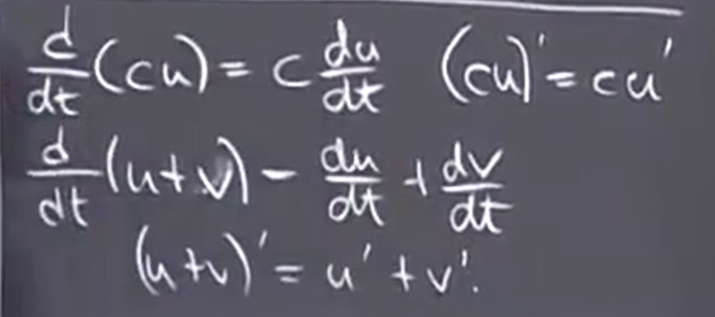 d/dt (cu) = c du/dt (cu)' = cu'
d/dt (u+v) - du/dt + dv/dt
(u+v)' = u' + v'.